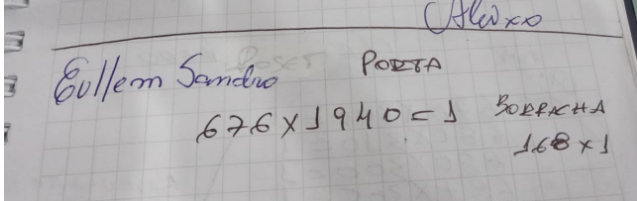 Aleixo
Eullem Sandro PORTA
676 x 1940 = 1 BORRACHA
168 x 1